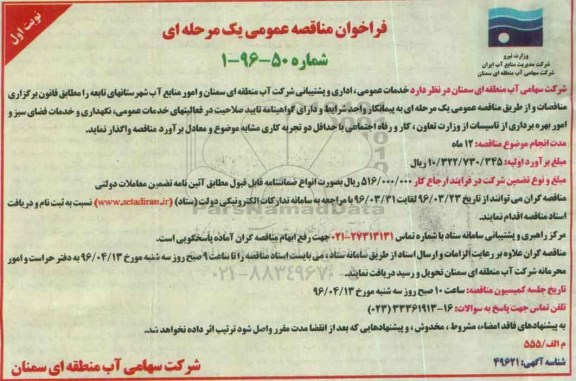 نوبت اول
فراخوان مناقصه عمومی یک مرحله ای
شماره ۵۰-۹۶-۱
وزارت نیرو
شرکت مدیریت منابع آب ایران
شرکت سهامی آب منطقه ای سمنان
شرکت سهامی آب منطقه ای سمنان در نظر دارد خدمات عمومی، اداری و پشتیبانی شرکت آب منطقه ای سمنان و امور منابع آب شهرستانهای تابعه را مطابق قانون برگزاری
مناقصات و از طریق مناقصه عمومی یک مرحله ای به پیمانکار واجد شرایط و دارای گواهینامه تایید صلاحیت در فعالیتهای خدمات عمومی، نگهداری و خدمات فضای سبز و
امور بهره برداری از تاسیسات از وزارت تعاون، کار و رفاه اجتماعی با حداقل دو تجربه کاری مشابه موضوع و معادل برآورد مناقصه واگذار نماید.
مدت انجام موضوع مناقصه: ۱۲ ماه
مبلغ برآورد اولیه: ۱۰/۳۲۲/۷۳۰/۳۴۵ ریال
مبلغ و نوع تضمین شرکت در فرایند ارجاع کار ۵۱۶/۰۰۰/۰۰۰ ریال بصورت انواع ضمانتنامه قابل قبول مطابق آئین نامه تضمین معاملات دولتی
مناقصه گران می توانند از تاریخ ۹۶/۰۳/۲۳ لغایت ۹۶/۰۳/۳۱ با مراجعه به سامانه تدارکات الکترونیکی دولت (ستاد) (www.setadiran.ir) نسبت به ثبت نام و دریافت
اسناد مناقصه اقدام نمایند.
مرکز راهبری و پشتیبانی سامانه ستاد با شماره تماس ۲۷۳۱۳۱۳۱-۰۲۱ جهت رفع ابهام مناقصه گران آماده پاسخگویی است.
مناقصه گران علاوه بر رعایت الزامات و ارسال اسناد از طریق سامانه ستاد، می بایست اسناد مناقصه را تا ساعت ۹ صبح روز سه شنبه مورخ ۹۶/۰۴/۱۳ به دفتر حراست و امور
محرمانه شرکت آب منطقه ای سمنان تحویل و رسید دریافت نمایند.
تاریخ جلسه کمیسیون مناقصه: ساعت ۱۰ صبح روز سه شنبه مورخ ۹۶/۰۴/۱۳
تلفن تماس جهت پاسخ به سوالات: ۱۶-۳۳۳۶۱۹۱۳ (۰۲۳)
به پیشنهادهای فاقد امضاء، مشروط، مخدوش، و پیشنهادهایی که بعد از انقضا مدت مقرر واصل شود ترتیب اثر داده نخواهد شد.
م الف/۵۵۵
شناسه آگهی: ۴۹۶۲۱
شرکت سهامی آب منطقه ای سمنان
ParsNamadData
۰۲۱-۸۸۳۴۹۶۷۰